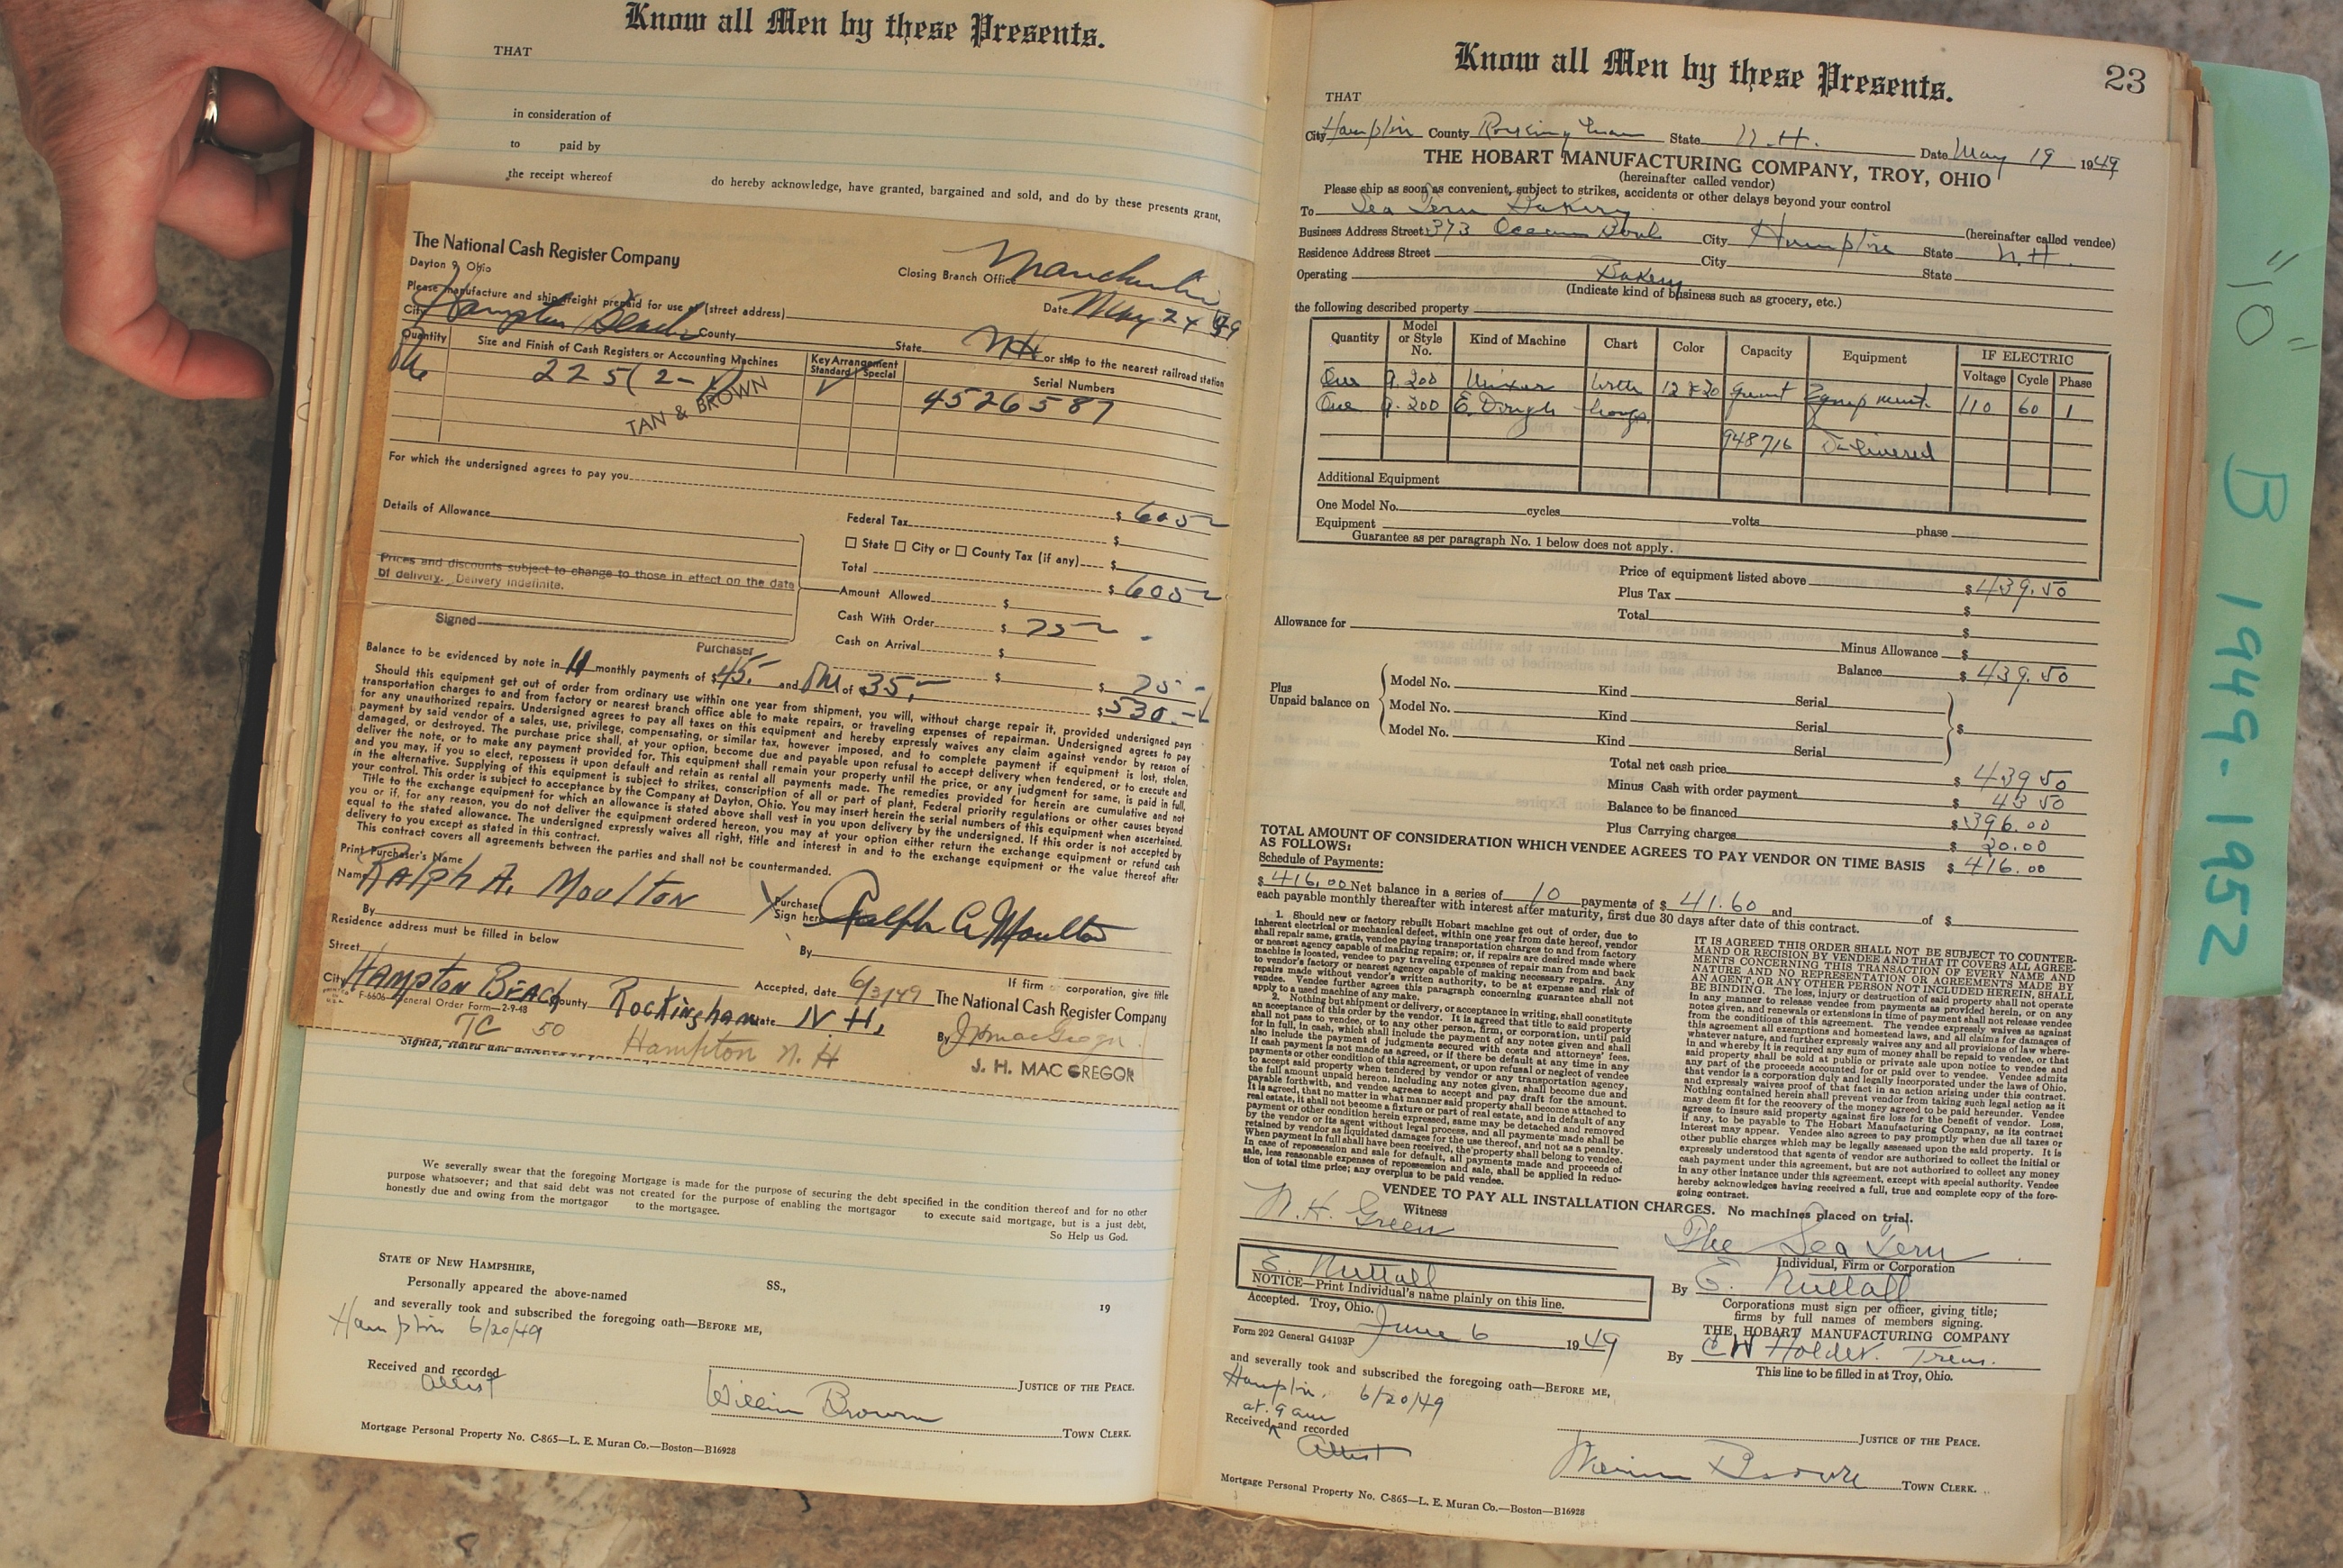 Know all Men by these Presents.
THAT
in consideration of
to paid by
the receipt whereof do hereby acknowledge, have granted, bargained and sold, and do by these presents grant,
The National Cash Register Company
Dayton 9, Ohio
Closing Branch Office Manchester
Please manufacture and ship freight prepaid for use at (street address)
Date May 24 49
City Hampton Beach County State NH or ship to the nearest railroad station
Quantity Size and Finish of Cash Registers or Accounting Machines Key Arrangement Standard Special Serial Numbers
225(2- 4526587
TAN & BROWN
For which the undersigned agrees to pay you $ 605
Details of Allowance
Federal Tax $
State City or County Tax (if any) $
Total $ 605
Prices and discounts subject to change to those in effect on the date
of delivery. Delivery indefinite.
Amount Allowed $
Cash With Order $ 75
Signed
Purchaser
Cash on Arrival $
$ $ 75-
Balance to be evidenced by note in 11 monthly payments of $ 45.- and One of 35.- $ 530.-
Should this equipment get out of order from ordinary use within one year from shipment, you will, without charge repair it, provided undersigned pays
transportation charges to and from factory or nearest branch office able to make repairs, or traveling expenses of repairman. Undersigned agrees to pay
for any unauthorized repairs. Undersigned agrees to pay all taxes on this equipment and hereby expressly waives any claim against vendor by reason of
payment by said vendor of a sales, use, privilege, compensating, or similar tax, however imposed, and to complete payment if equipment is lost, stolen,
damaged, or destroyed. The purchase price shall, at your option, become due and payable upon refusal to accept delivery when tendered, or to execute and
deliver the note, or to make any payment provided for. This equipment shall remain your property until the price, or any judgment for same, is paid in full,
and you may, if you so elect, repossess it upon default and retain as rental all payments made. The remedies provided for herein are cumulative and not
in the alternative. Supplying of this equipment is subject to strikes, conscription of all or part of plant, Federal priority regulations or other causes beyond
your control. This order is subject to acceptance by the Company at Dayton, Ohio. You may insert herein the serial numbers of this equipment when ascertained.
Title to the exchange equipment for which an allowance is stated above shall vest in you upon delivery by the undersigned. If this order is not accepted by
you or if, for any reason, you do not deliver the equipment ordered hereon, you may at your option either return the exchange equipment or refund cash
equal to the stated allowance. The undersigned expressly waives all right, title and interest in and to the exchange equipment or the value thereof after
delivery to you except as stated in this contract.
This contract covers all agreements between the parties and shall not be countermanded.
Print Purchaser's Name
Name RAlph A. MOULTON Purchaser Sign here Ralph A Moulton
By By
Residence address must be filled in below
If firm or corporation, give title
Street Accepted, date 6/3/49 The National Cash Register Company
City HAMPTON BEACH County Rockingham State N H.
F-6606—General Order Form—2-9-48
By J H MacGregor
TC 50 Hampton N. H
J. H. MAC GREGOR
We severally swear that the foregoing Mortgage is made for the purpose of securing the debt specified in the condition thereof and for no other
purpose whatsoever; and that said debt was not created for the purpose of enabling the mortgagor to execute said mortgage, but is a just debt,
honestly due and owing from the mortgagor to the mortgagee.
So Help us God.
STATE OF NEW HAMPSHIRE,
SS.,
Personally appeared the above-named 19
and severally took and subscribed the foregoing oath—BEFORE ME,
Hampton 6/20/49
Received and recorded
JUSTICE OF THE PEACE.
Attest William Brown
TOWN CLERK.
Mortgage Personal Property No. C-865—L. E. Muran Co.—Boston—B16928
Know all Men by these Presents.
23
THAT
City Hampton County Rockingham State N. H. Date May 19 1949
THE HOBART MANUFACTURING COMPANY, TROY, OHIO
(hereinafter called vendor)
Please ship as soon as convenient, subject to strikes, accidents or other delays beyond your control
To Sea Tern Bakery (hereinafter called vendee)
Business Address Street 373 Ocean Boul City Hampton State N.H.
Residence Address Street City State
Operating Bakery
(Indicate kind of business such as grocery, etc.)
the following described property
Quantity Model or Style No. Kind of Machine Chart Color Capacity Equipment IF ELECTRIC
Voltage Cycle Phase
One 200 Mixer 12 & 20 Equipment. 110 60 1
One 200 E. Dough
948716 Delivered
Additional Equipment
One Model No. cycles volts phase
Equipment
Guarantee as per paragraph No. 1 below does not apply.
Price of equipment listed above $ 439.50
Plus Tax $
Total $
Allowance for Minus Allowance $
Balance $ 439.50
Plus
Unpaid balance on
Model No. Kind Serial
Model No. Kind Serial $
Model No. Kind Serial
Total net cash price $ 439 50
Minus Cash with order payment $ 43 50
Balance to be financed $ 396.00
Plus Carrying charges $ 20.00
TOTAL AMOUNT OF CONSIDERATION WHICH VENDEE AGREES TO PAY VENDOR ON TIME BASIS $ 416.00
AS FOLLOWS:
Schedule of Payments:
$ 416.00 Net balance in a series of 10 payments of $ 41.60 and of $
each payable monthly thereafter with interest after maturity, first due 30 days after date of this contract.
1. Should new or factory rebuilt Hobart machine get out of order, due to
inherent electrical or mechanical defect, within one year from date hereof, vendor
shall repair same, gratis, vendee paying transportation charges to and from factory
or nearest agency capable of making repairs; or, if repairs are desired made where
machine is located, vendee to pay traveling expenses of repair man from and back
to vendor's factory or nearest agency capable of making necessary repairs. Any
repairs made without vendor's written authority, to be at expense and risk of
vendee. Vendee further agrees this paragraph concerning guarantee shall not
apply to a used machine of any make.
2. Nothing but shipment or delivery, or acceptance in writing, shall constitute
an acceptance of this order by the vendor. It is agreed that title to said property
shall not pass to vendee, or to any other person, firm, or corporation, until paid
for in full, in cash, which shall include the payment of any notes given and shall
also include the payment of judgments secured with costs and attorneys' fees.
If cash payment is not made as agreed, or if there be default at any time in any
payments or other condition of this agreement, or upon refusal or neglect of vendee
to accept said property when tendered by vendor or any transportation agency,
the full amount unpaid hereon, including any notes given, shall become due and
payable forthwith, and vendee agrees to accept and pay draft for the amount.
It is agreed, that no matter in what manner said property shall become attached to
real estate, it shall not become a fixture or part of real estate, and in default of any
payment or other condition herein expressed, same may be detached and removed
by the vendor or its agent without legal process, and all payments made shall be
retained by vendor as liquidated damages for the use thereof, and not as a penalty.
When payment in full shall have been received, the property shall belong to vendee.
In case of repossession and sale for default, all payments made and proceeds of
sale, less reasonable expenses of repossession and sale, shall be applied in reduc-
tion of total time price; any overplus to be paid vendee.
IT IS AGREED THIS ORDER SHALL NOT BE SUBJECT TO COUNTER-
MAND OR RECISION BY VENDEE AND THAT IT COVERS ALL AGREE-
MENTS CONCERNING THIS TRANSACTION OF EVERY NAME AND
NATURE AND NO REPRESENTATION OR AGREEMENTS MADE BY
AN AGENT, OR ANY OTHER PERSON NOT INCLUDED HEREIN, SHALL
BE BINDING. The loss, injury or destruction of said property shall not operate
in any manner to release vendee from payments as provided herein, or on any
notes given, and renewals or extensions in time of payment shall not release vendee
from the conditions of this agreement. The vendee expressly waives as against
this agreement all exemptions and homestead laws, and all claims for damages of
whatever nature, and further expressly waives any and all provisions of law where-
in and whereby it is required any sum of money shall be repaid to vendee, or that
said property shall be sold at public or private sale upon notice to vendee and
any part of the proceeds accounted for or paid over to vendee. Vendee admits
that vendor is a corporation duly and legally incorporated under the laws of Ohio,
and expressly waives proof of that fact in an action arising under this contract.
Nothing contained herein shall prevent vendor from taking such legal action as it
may deem fit for the recovery of the money agreed to be paid hereunder. Vendee
agrees to insure said property against fire loss for the benefit of vendor. Loss,
if any, to be payable to The Hobart Manufacturing Company, as its contract
interest may appear. Vendee also agrees to pay promptly when due all taxes or
other public charges which may be legally assessed upon the said property. It is
expressly understood that agents of vendor are authorized to collect the initial or
cash payment under this agreement, but are not authorized to collect any money
in any other instance under this agreement, except with special authority. Vendee
hereby acknowledges having received a full, true and complete copy of the fore-
going contract.
VENDEE TO PAY ALL INSTALLATION CHARGES. No machines placed on trial.
Witness
N. K. Green The Sea Tern
Individual, Firm or Corporation
E. Nuttall By E. Nuttall
NOTICE—Print Individual's name plainly on this line.
Corporations must sign per officer, giving title;
firms by full names of members signing.
Accepted. Troy, Ohio. June 6 1949
THE HOBART MANUFACTURING COMPANY
Form 292 General G4193P
By C W Holder. Treas.
This line to be filled in at Troy, Ohio.
and severally took and subscribed the foregoing oath—BEFORE ME,
Hampton, 6/20/49
at 9 am
Received and recorded
JUSTICE OF THE PEACE.
Attest William Brown
TOWN CLERK.
Mortgage Personal Property No. C-865—L. E. Muran Co.—Boston—B16928
"10" B 1949-1952